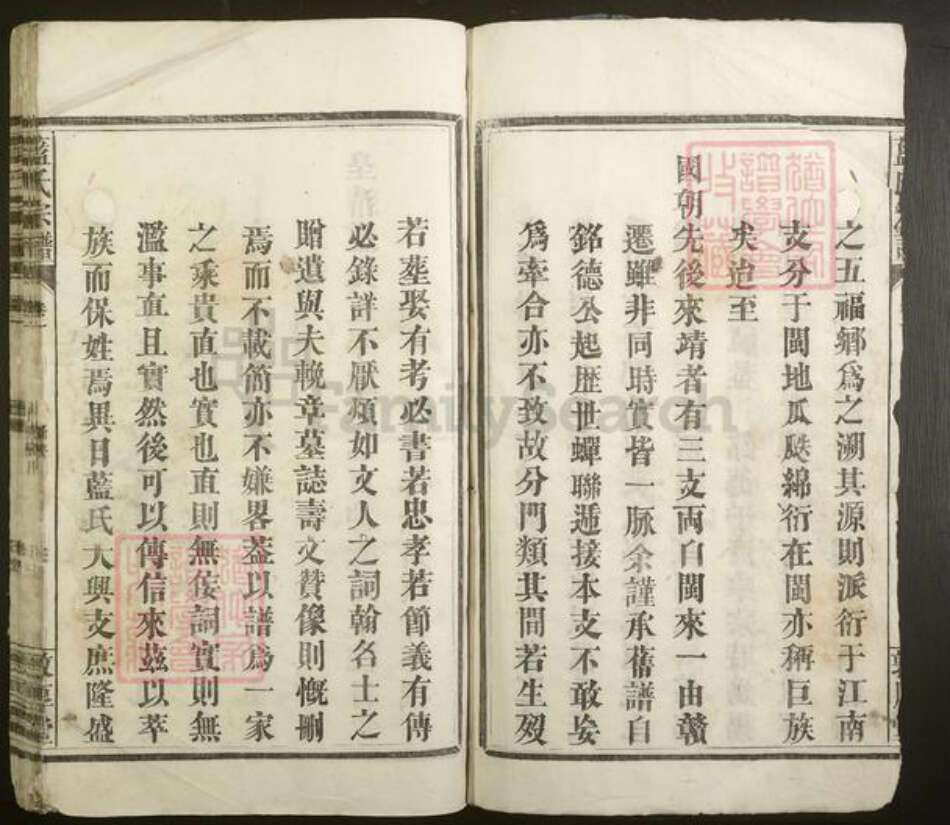 之五福鄉爲之溯其源則派衍于江南
支分于閩地瓜瓞綿衍在閩亦稱巨族
矣迨至
國朝先後來靖者有三支兩自閩來一由贛
遷雖非同時實皆一脉余謹承舊譜自
銘德公起歷世蟬聯遞接本支不敢妄
爲牽合亦不致故分門類其間若生歿
若塟娶有考必書若忠孝若節義有傳
必錄詳不厭煩如文人之詞翰名士之
贈遺與夫輓章墓誌壽文贊像則慨刪
焉而不載簡亦不嫌畧葢以譜爲一家
之乘貴直也實也直則無佞詞實則無
濫事直且實然後可以傳信來茲以萃
族而保姓焉異日藍氏大興支庶隆盛
藍氏宗譜
卷
FamilySearch